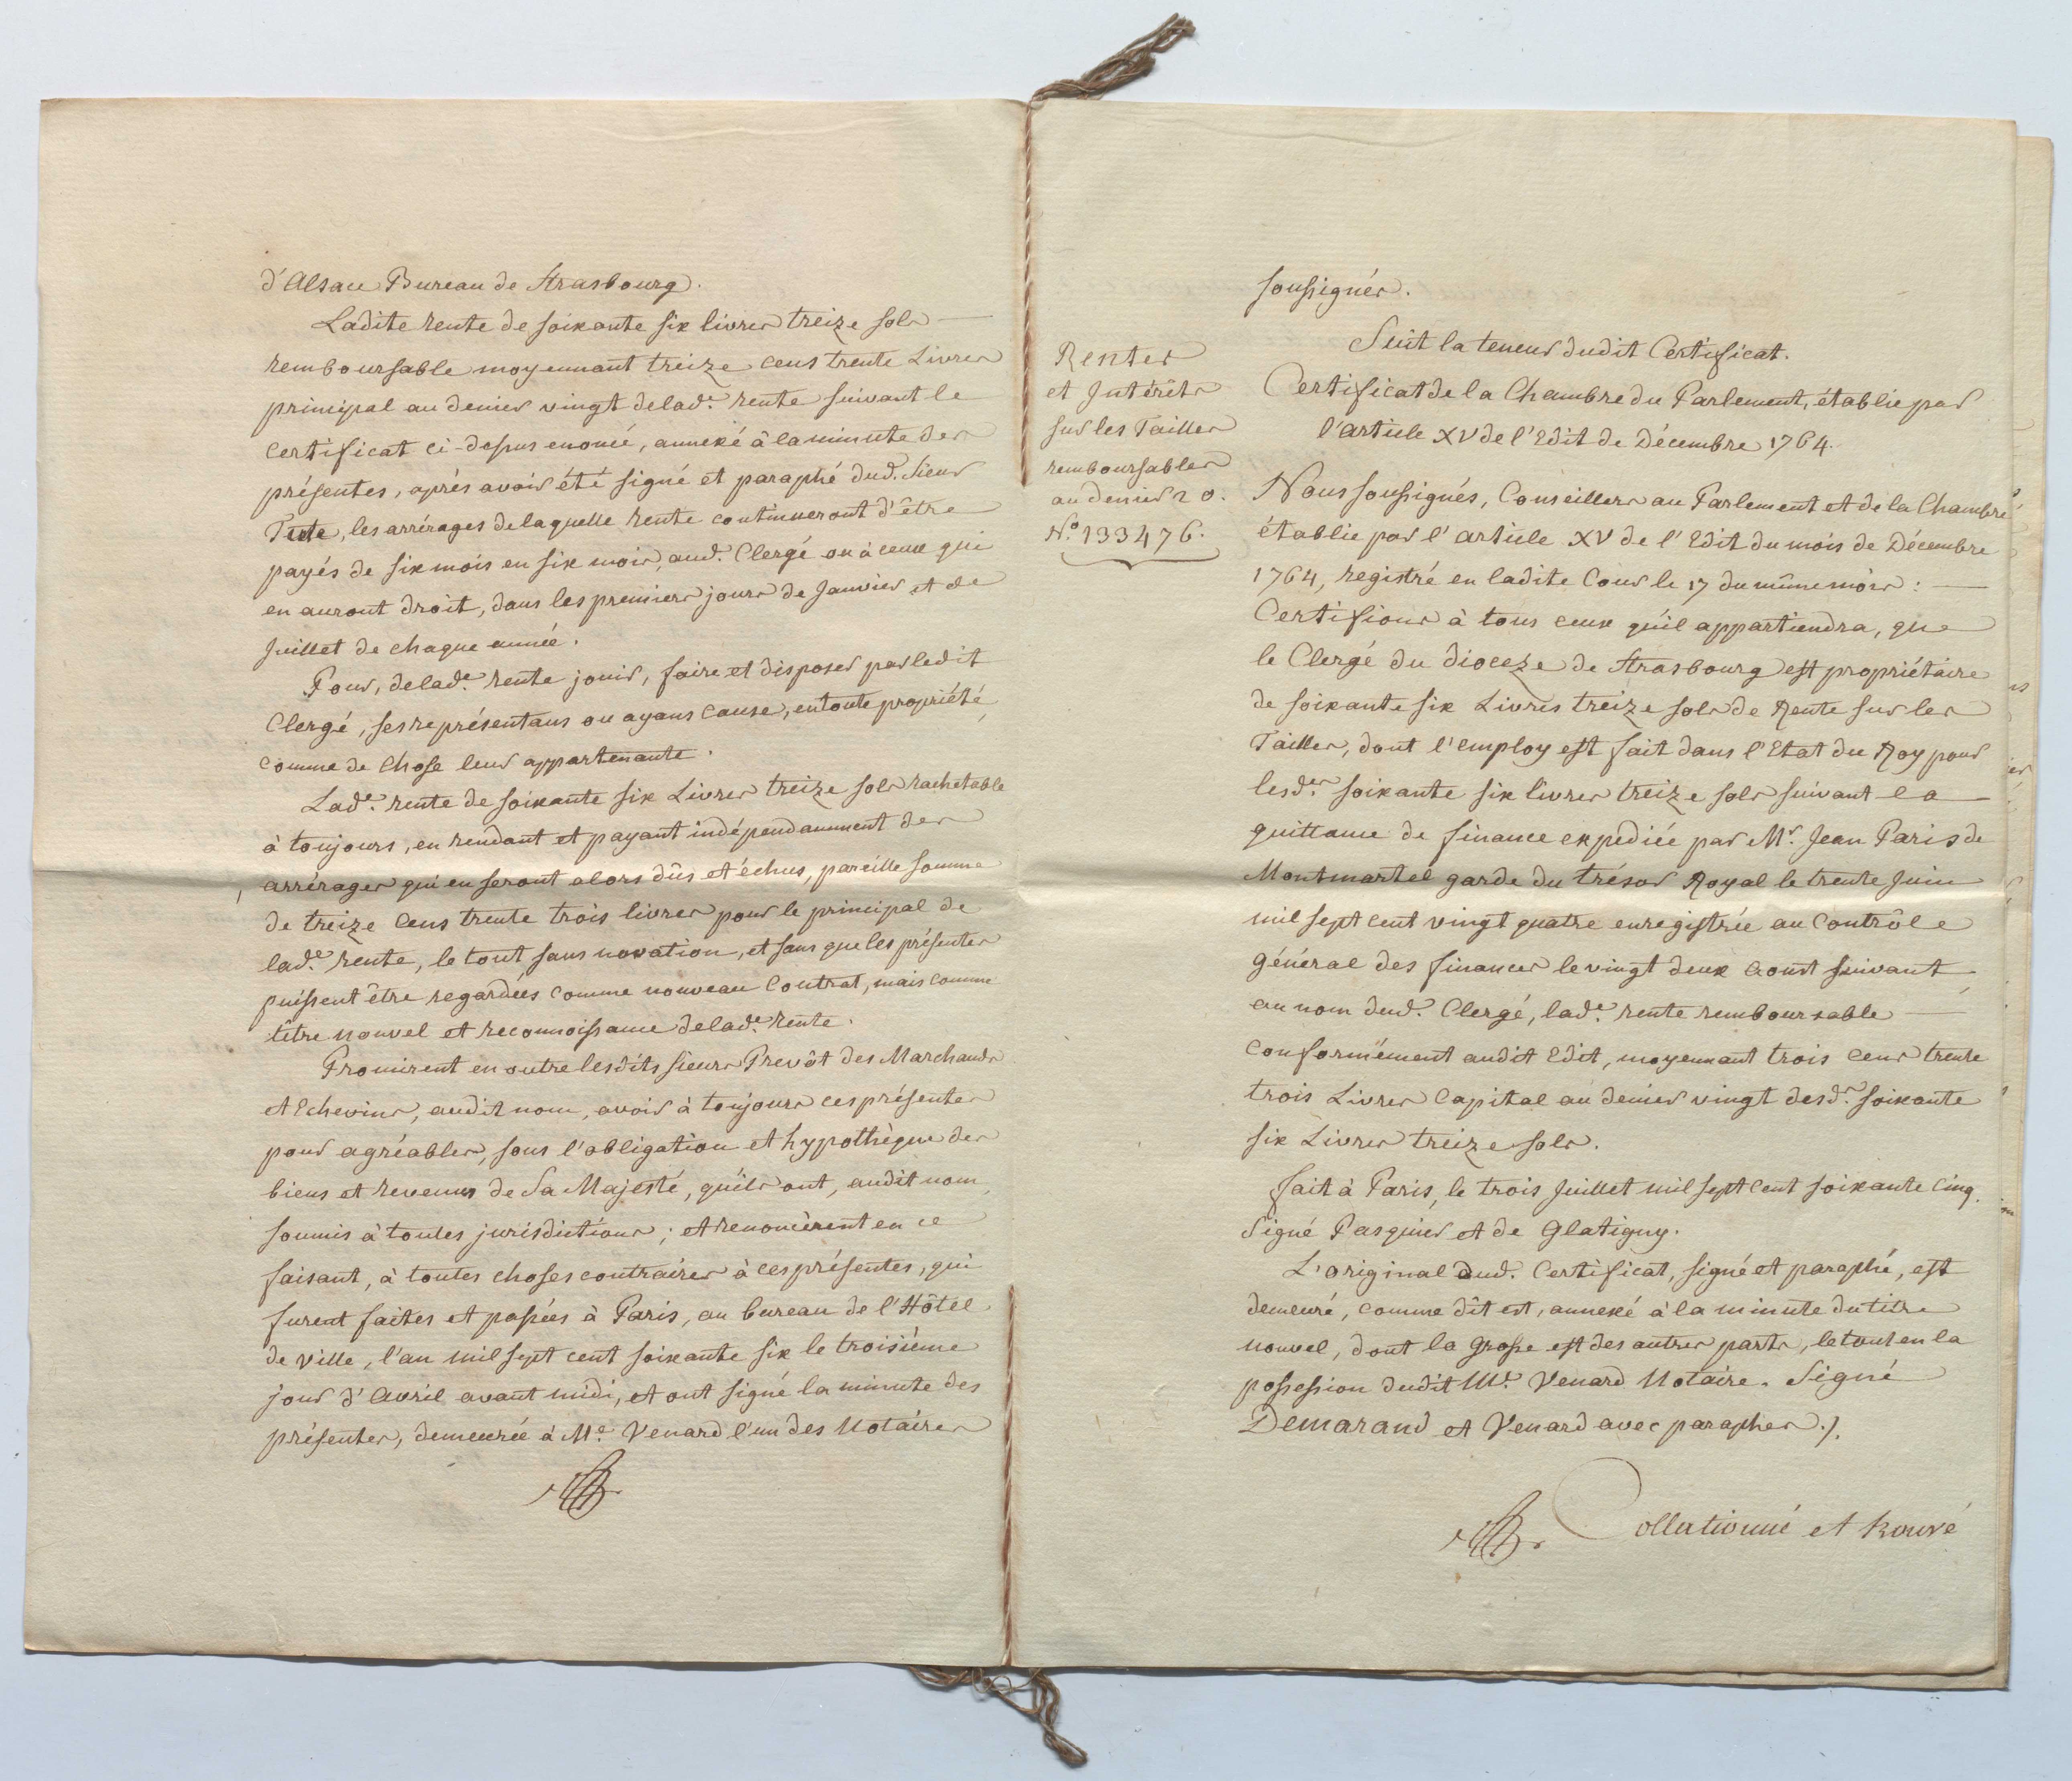 d'Alsace Bureau de Strasbourg.
Ladite rente de soixante six livres treize sols
remboursable moyennant treize cens trente Livres
principal au denier vingt de lad.e rente suivant le
certificat ci-dessus enoncé, annexé à la minute des
présentes, après avoir été signé et paraphé dud. Sieur
, les arrérages de laquelle rente continueront d'être
payés de six mois en six mois, aud. Clergé ou à ceux qui
en auront droit, dans les premiers jours de Janvier et de
Juillet de chaque année.
Pour, de lad.e rente jouir, faire et disposer par ledit
Clergé, ses représentans ou ayans cause, en toute propriété
comme de chose leur appartenante.
Lad.e rente de soixante six Livres treize sols rachetable
à toujours, en rendant et payant indépendamment des
arrérages qui en seront alors dûs et échus, pareille somme
de treize cens trente trois livres pour le principal de
lad.e rente, le tout sans novation, et sans que les présentes
puissent être regardées comme nouveau Contrat, mais comme
titre nouvel et reconnoissance de lad.e rente.
Promirent en outre lesdits sieurs Prevôt des Marchands
et Echevins, audit nom, avoir à toujours ces présentes
pour agréables, sous l'obligation et hypothèque des
biens et revenus de Sa Majesté, qu'ils ont, audit nom,
soumis à toutes jurisdictions; et renoncèrent en ce
faisant, à toutes choses contraires à ces présentes, qui
furent faites et passées à Paris, au bureau de l'Hôtel
de ville, l'an mil sept cent soixante six le troisième
jour d'Avril avant midi, et ont signé la minute des
présentes, demeurée à M.e Venard l'un des Notaires
soussignés.
Suit la teneur dudit Certificat.
Rentes
et Intérêts
sur les Tailles
remboursables
au denier 20.
N.o 133476.
Certificat de la Chambre du Parlement, établie par
l'article XV de l'Edit de Décembre 1764.
Nous soussignés, Conseillers au Parlement et de la Chambre
établie par l'article XV de l'Edit du mois de Décembre
1764, registré en ladite Cour le 17 du même mois:
Certifions à tous ceux qu'il appartiendra, que
le Clergé du dioceze de Strasbourg est propriétaire
de soixante six Livres treize sols de Rente sur les
Tailles, dont l'employ est fait dans l'Etat du Roy pour
lesd.es soixante six livres treize sols suivant la
quittance de finance expediée par M.r Jean Paris de
Montmartel garde du trésor Royal le trente Juin
mil sept cent vingt quatre enregistrée au Contrôle
général des finances le vingt deux aoust suivant
au nom dud. Clergé, lad.e rente remboursable
conformément audit Edit, moyennant trois cens trente
trois Livres Capital au denier vingt desd.es soixante
six Livres treize sols.
fait à Paris, le trois Juillet mil sept cent soixante cinq.
Signé Pasquier et de Glatigny.
L'original dud. Certificat, signé et paraphé, est
demeuré, comme dit est, annexé à la minute du titre
nouvel, dont la grosse est des autres parts, le tout en la
possession dudit M.e Venard Notaire. Signé
Demarand et Venard avec paraphes ./.
Collationné et trouvé